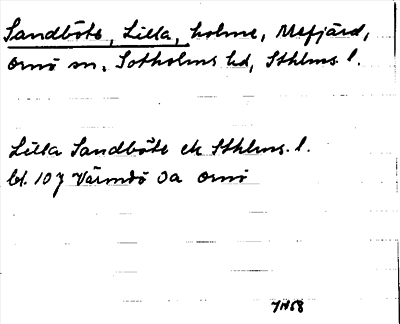 Sandböte, Lilla, holme, Mefjärd,
Ornö sn, Sotholms hd, Sthlms l.
Lilla Sandböte ek Sthlms. l.
bl. 107 Värmdö Sa Ornö